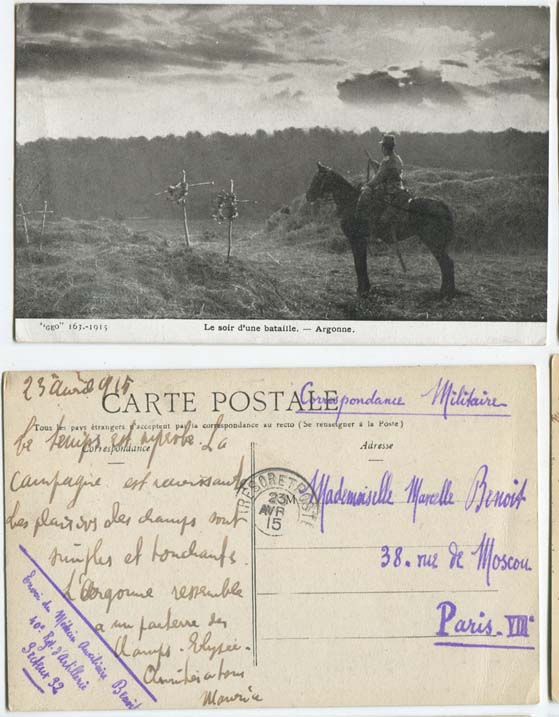 "GEO" 163.-1915
Le soir d'une bataille. — Argonne.
23 avril 915
CARTE POSTALE
Correspondance Militaire
Tous les pays étrangers n'acceptent pas la correspondance au recto (Se renseigner à la Poste)
Correspondance
Adresse
Le temps est superbe. La
Campagne est ravissante
Les plaisirs des champs sont
simples et touchants.
L'Argonne ressemble
a un parterre des
Champs-Elysées.
Amitiés a tous
Maurice
TRESOR ET POSTES
23 M
AVR
15
Mademoiselle Marcelle Benoit
38. rue de Moscou
Paris-VIIIe
Envoi du Médecin Auxiliaire Benoit
40e Rgt d'Artillerie
Secteur 32